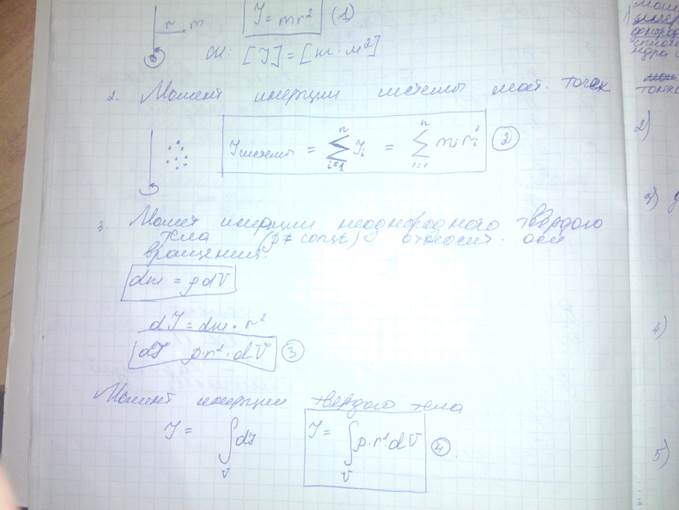 r m J = mr² (1)
СИ: [J] = [кг · м²]
2. Момент инерции системы мат. точек
J системы = ∑ i=1 n Ji = ∑ i=1 n mi ri² (2)
3. Момент инерции неоднородного твердого
тела (ρ ≠ const) относит. оси
вращения
dm = ρdV
dJ = dm · r²
dJ ρ · r² · dV (3)
Момент инерции твердого тела
J = ∫ V dJ J = ∫ V ρ · r² dV (4)
2)
3)
4)
5)